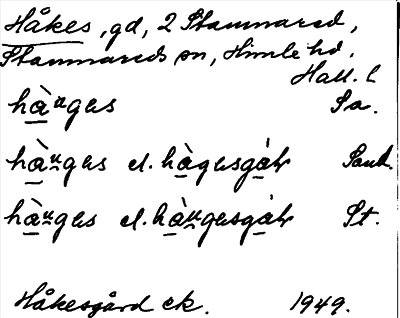 Håkes, gd, 2 Stammared,
Stammareds sn, Himle hd.
Hall. l
hàu̯gəs Sa.
hàu̯gəs el. hàgəsgår Saml.
hàu̯gəs el. hàu̯gəsgår St.
Håkesgård ek. 1949.